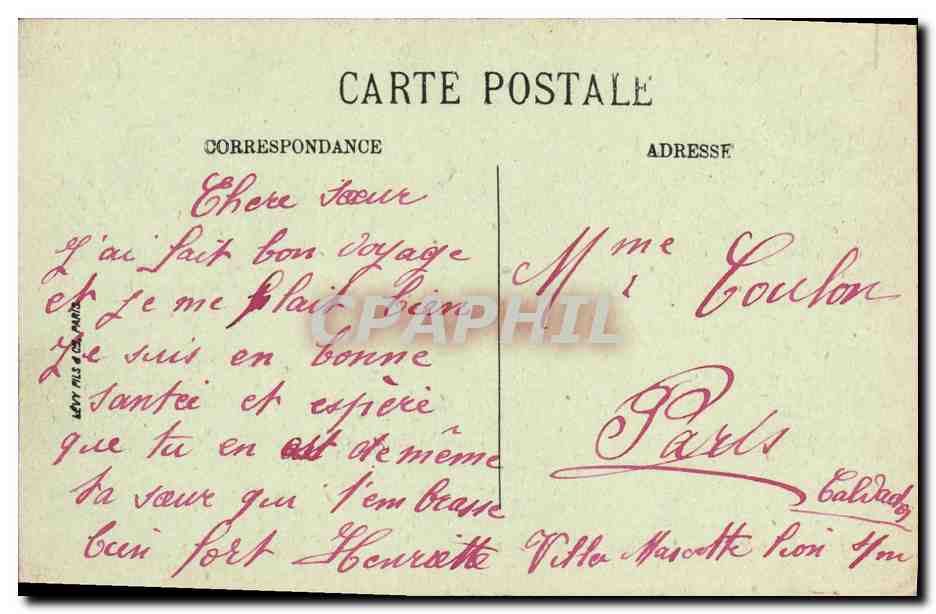 CARTE POSTALE
CORRESPONDANCE
ADRESSE
Chere sœur
J'ai fait bon voyage
et je me plait bien
Je suis en bonne
santée et espère
que tu en est de même
ta sœur qui t'embrasse
bien fort Henriette
Mme Coulon
Paris
Calvados
Villa Mascotte Lion s/m
LÉVY FILS & Cie, PARIS
CPAPHIL